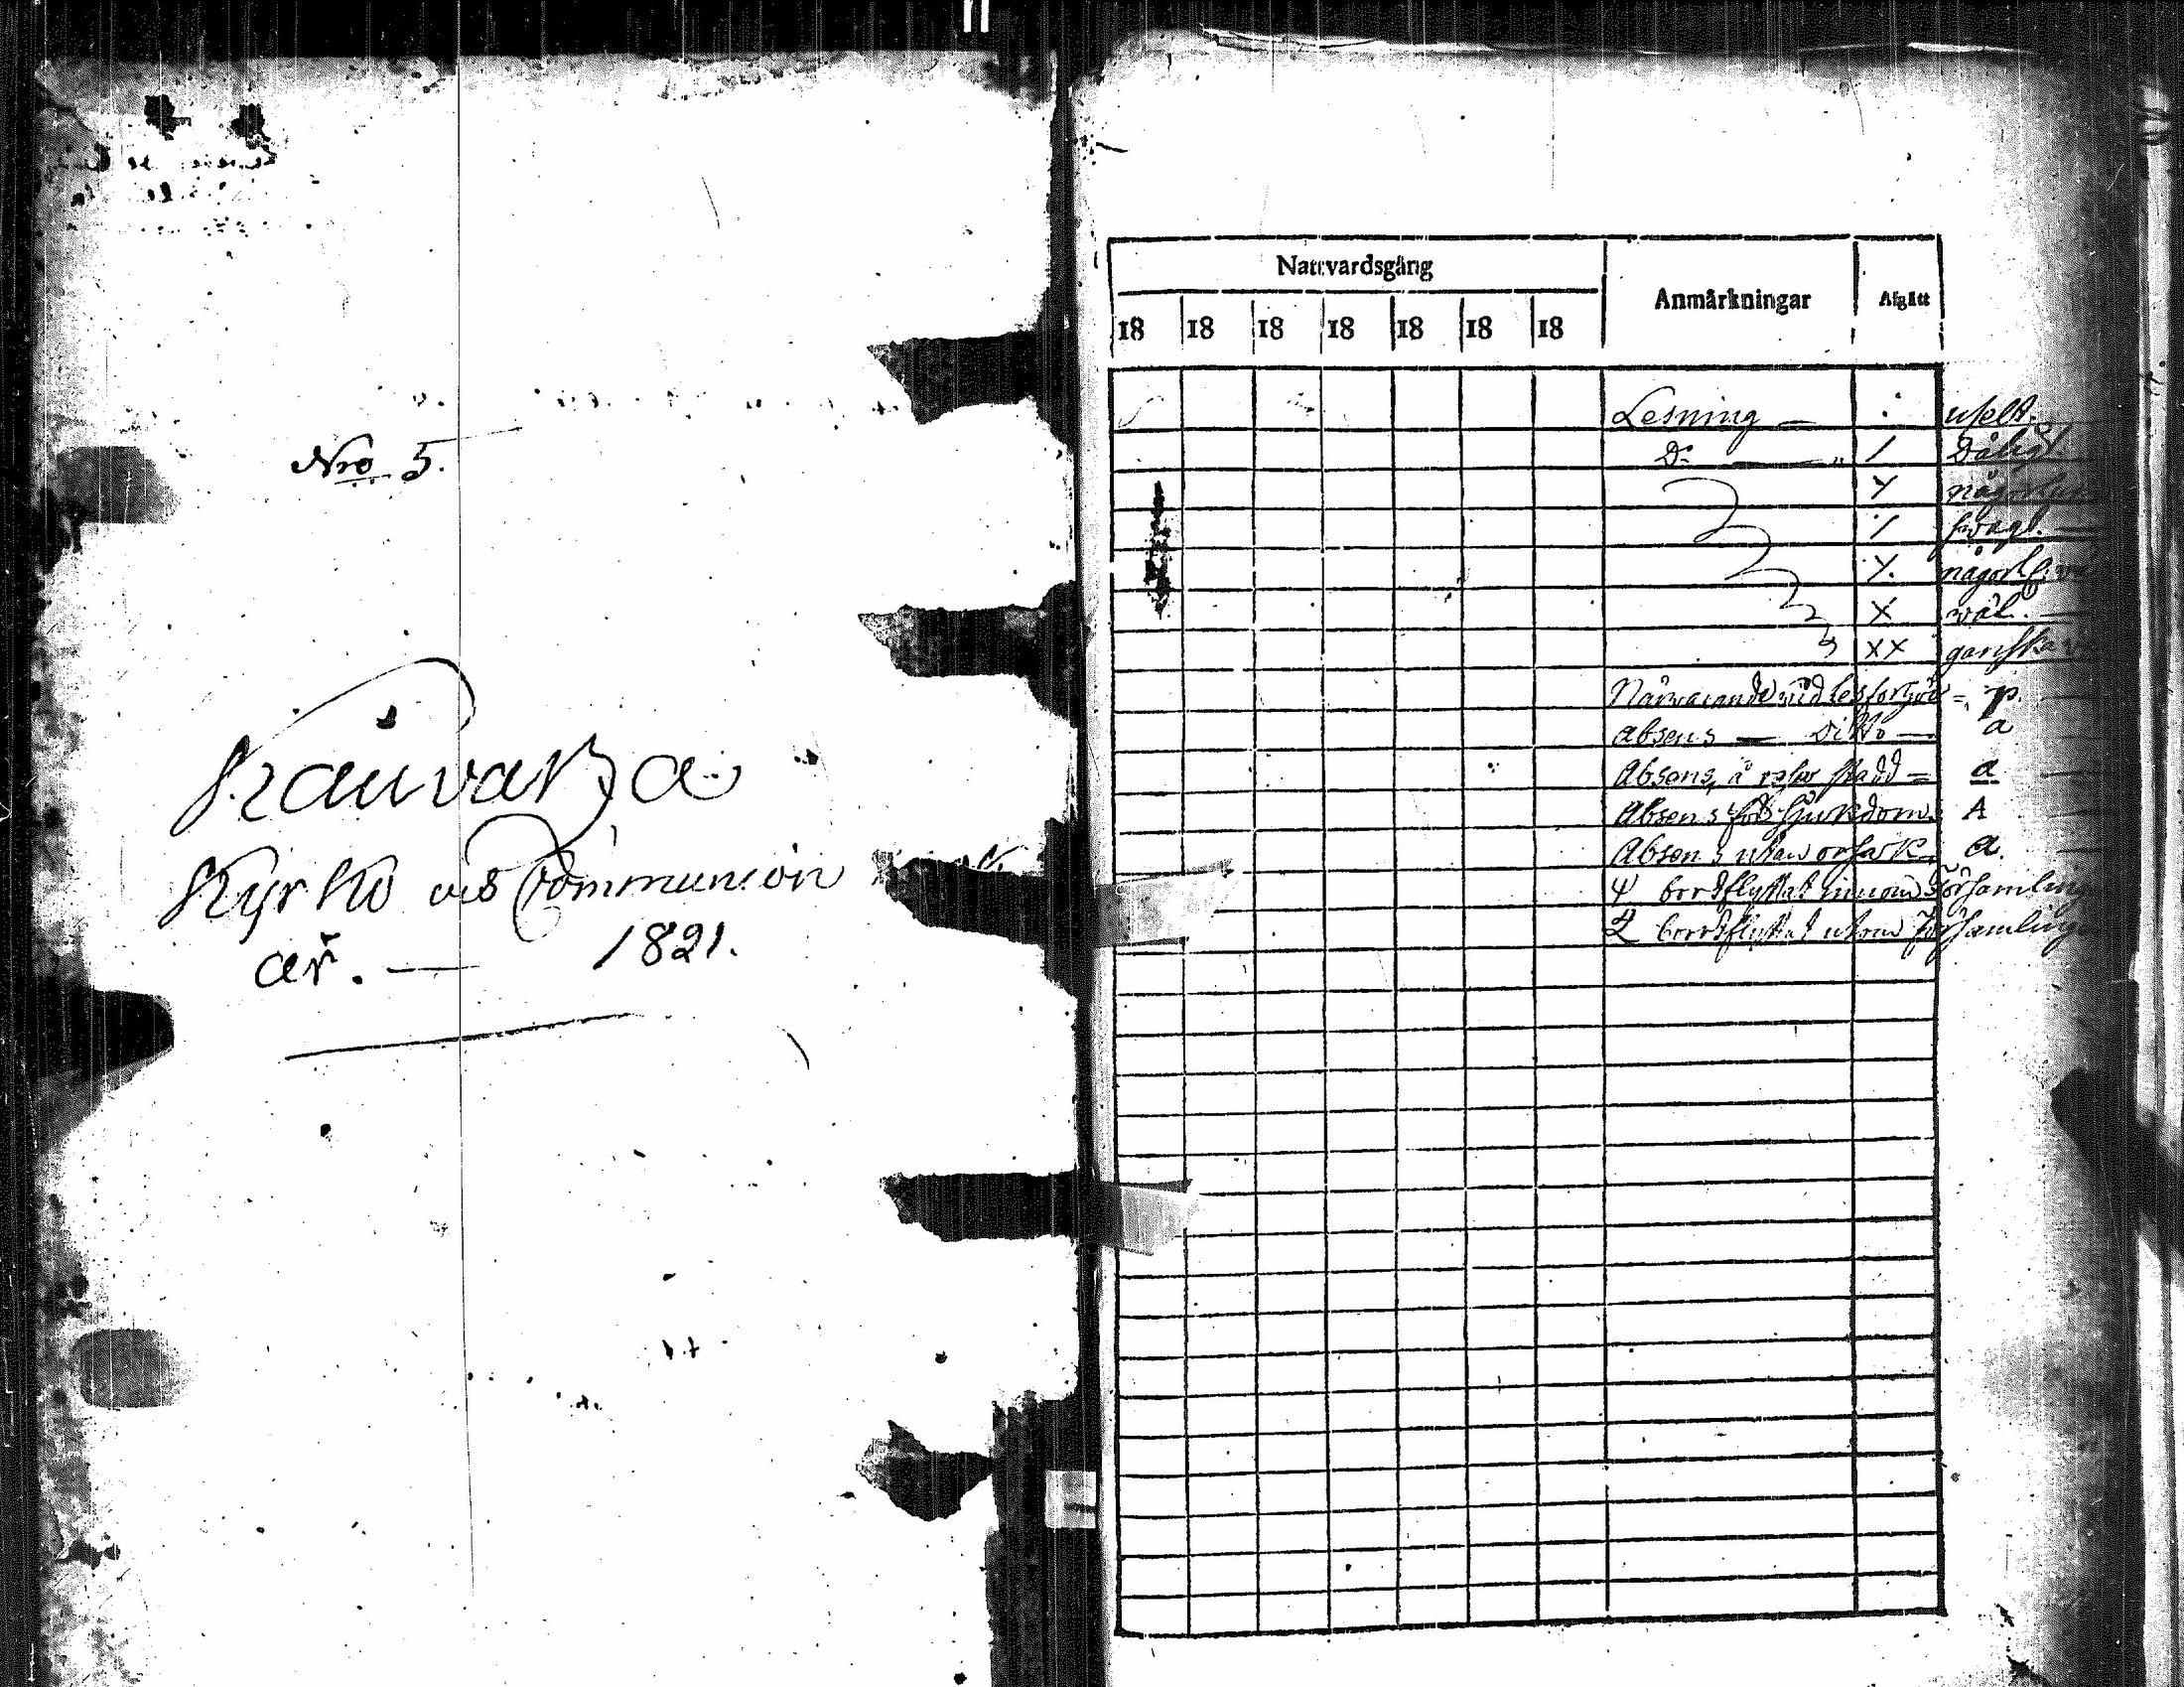 Nro 5.
Kauvatza
Kyrko och Communion
år. — 1821.
Nattvardsgång
Anmärkningar
Afgått
18 18 18 18 18 18 18
Lesning — : uselt.
Do — „ / Dåligt.
Y någorlun
/ svagt. —
Y. någorl. wä
X wäl. —
XX ganska wä
Närwarande wid lesförhör = p.
absens — ditto — a
Absens, å resor stadd = a
Absens för sjukdom: A
Absens utan orsak, a.
bortflyttat innom Församling
bortflyttat utom Församlinge